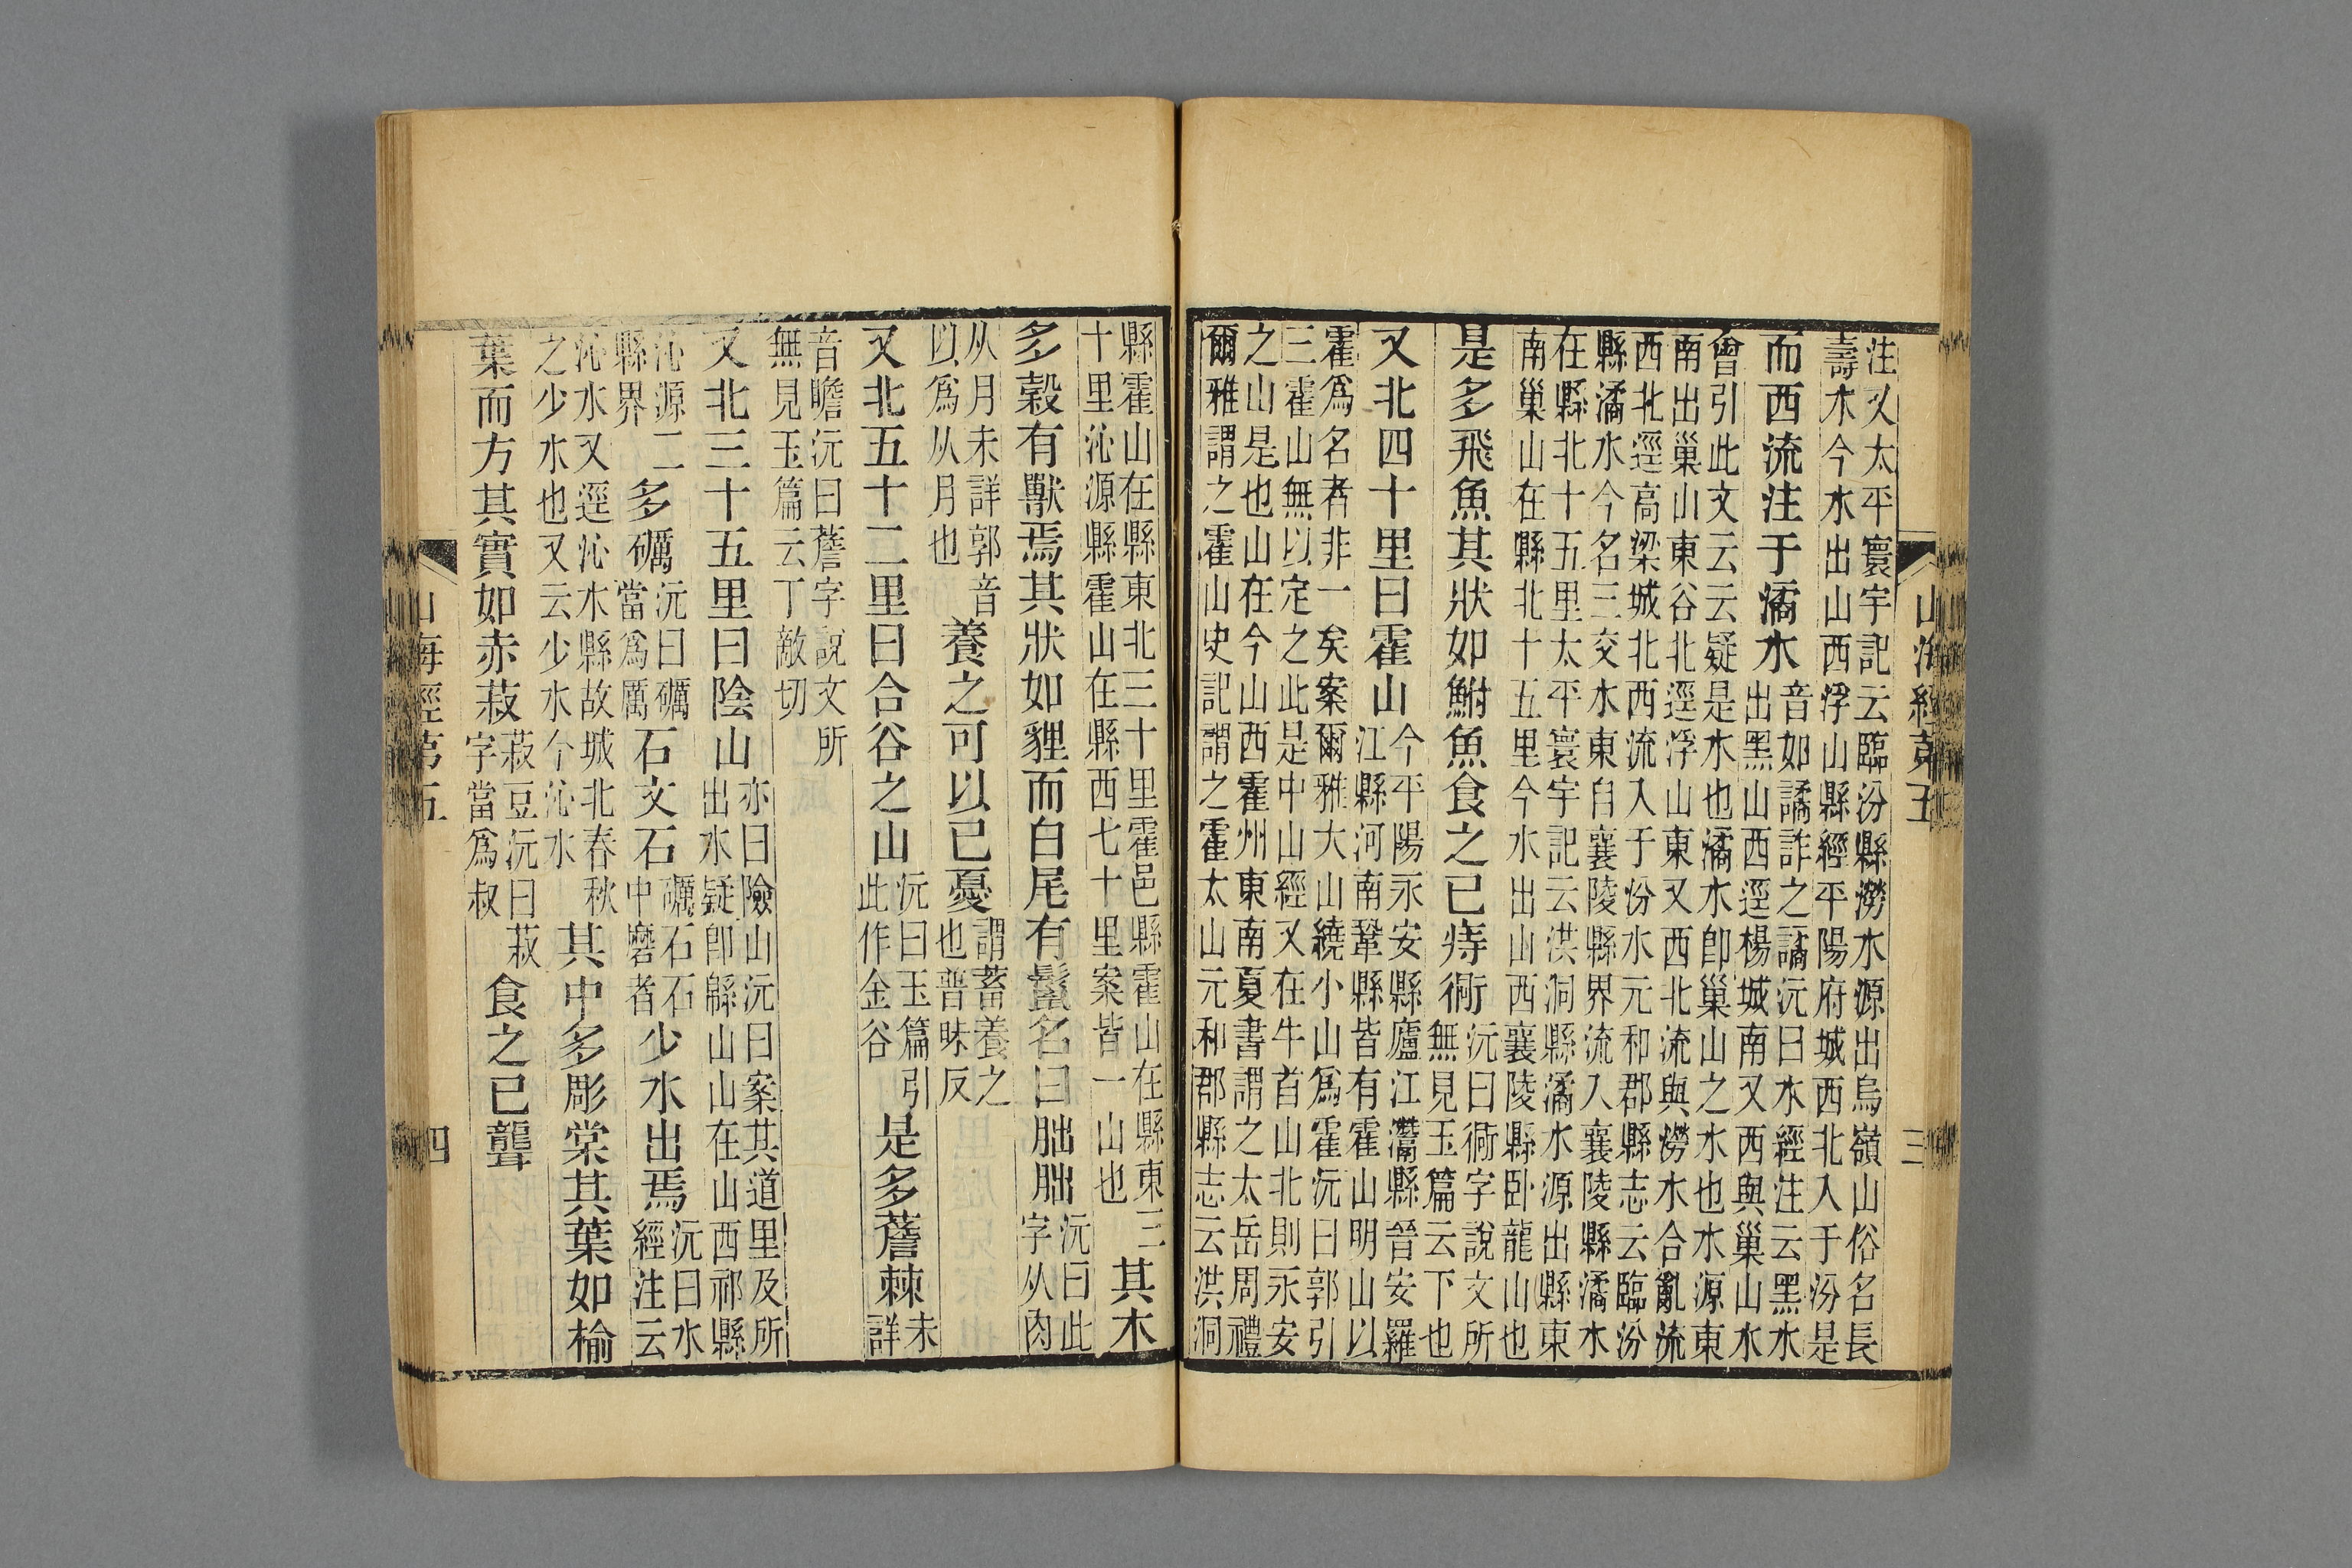 山海經第五
三
注又太平寰宇記云臨汾縣澇水源出烏嶺山俗名長
壽水今水出山西浮山縣經平陽府城西北入于汾是
而西流注于潏水音如譎詐之譎沅曰水經注云黑水
出黑山西逕楊城南又西與巢山水
會引此文云云疑是水也潏水卽巢山之水也水源東
南出巢山東谷北逕浮山東又西北流與澇水合亂流
西北逕高梁城北西流入于汾水元和郡縣志云臨汾
縣潏水今名三交水東自襄陵縣界流入襄陵縣潏水
在縣北十五里太平寰宇記云洪洞縣潏水源出縣東
南巢山在縣北十五里今水出山西襄陵縣卧龍山也
是多飛魚其狀如鮒魚食之已痔衕沅曰衕字說文所
無見玉篇云下也
又北四十里曰霍山今平陽永安縣廬江灊縣晉安羅
江縣河南鞏縣皆有霍山明山以
霍爲名者非一矣案爾雅大山繞小山爲霍沅曰郭引
三霍山無以定之此是中山經又在牛首山北則永安
之山是也山在今山西霍州東南夏書謂之太岳周禮
爾雅謂之霍山史記謂之霍太山元和郡縣志云洪洞
縣霍山在縣東北三十里霍邑縣霍山在縣東三
十里沁源縣霍山在縣西七十里案皆一山也其木
多穀有獸焉其狀如貍而白尾有鬣名曰朏朏沅曰此
字从肉
从月未詳郭音
以爲从月也養之可以已憂謂蓄養之
也普昧反
又北五十二里曰合谷之山沅曰玉篇引
此作金谷是多薝棘未
詳
音瞻沅曰薝字說文所
無見玉篇云丁敵切
又北三十五里曰陰山亦曰險山沅曰案其道里及所
出水疑卽緜山山在山西祁縣
沁源二
縣界多礪沅曰礪
當爲厲石文石礪石石
中磨者少水出焉沅曰水
經注云
沁水又逕沁水縣故城北春秋
之少水也又云少水今沁水其中多彫棠其葉如榆
葉而方其實如赤菽菽豆沅曰菽
字當爲叔食之已聾
山海經第五
四